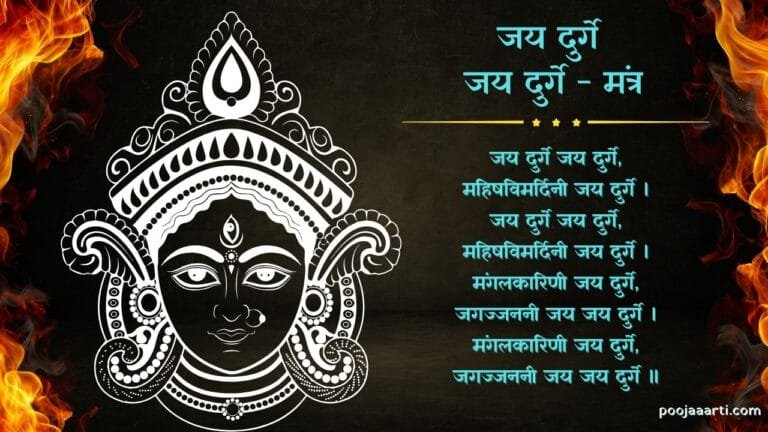 जय दुर्गे
जय दुर्गे - मंत्र
जय दुर्गे जय दुर्गे,
महिषविमर्दिनी जय दुर्गे ।
जय दुर्गे जय दुर्गे,
महिषविमर्दिनी जय दुर्गे ।
मंगलकारिणी जय दुर्गे,
जगज्जननी जय जय दुर्गे ।
मंगलकारिणी जय दुर्गे,
जगज्जननी जय जय दुर्गे ॥
poojaaarti.com